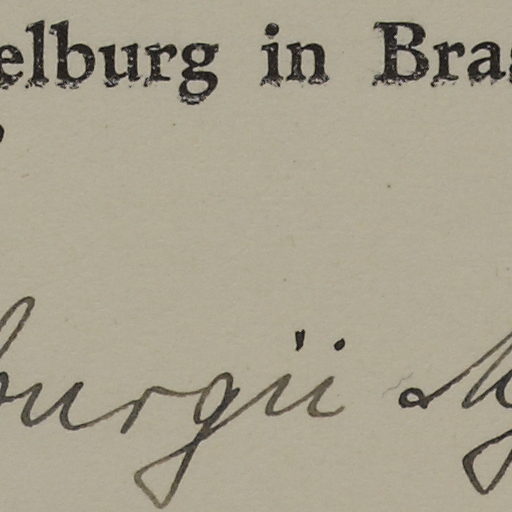 elburg in Bras
burgii My